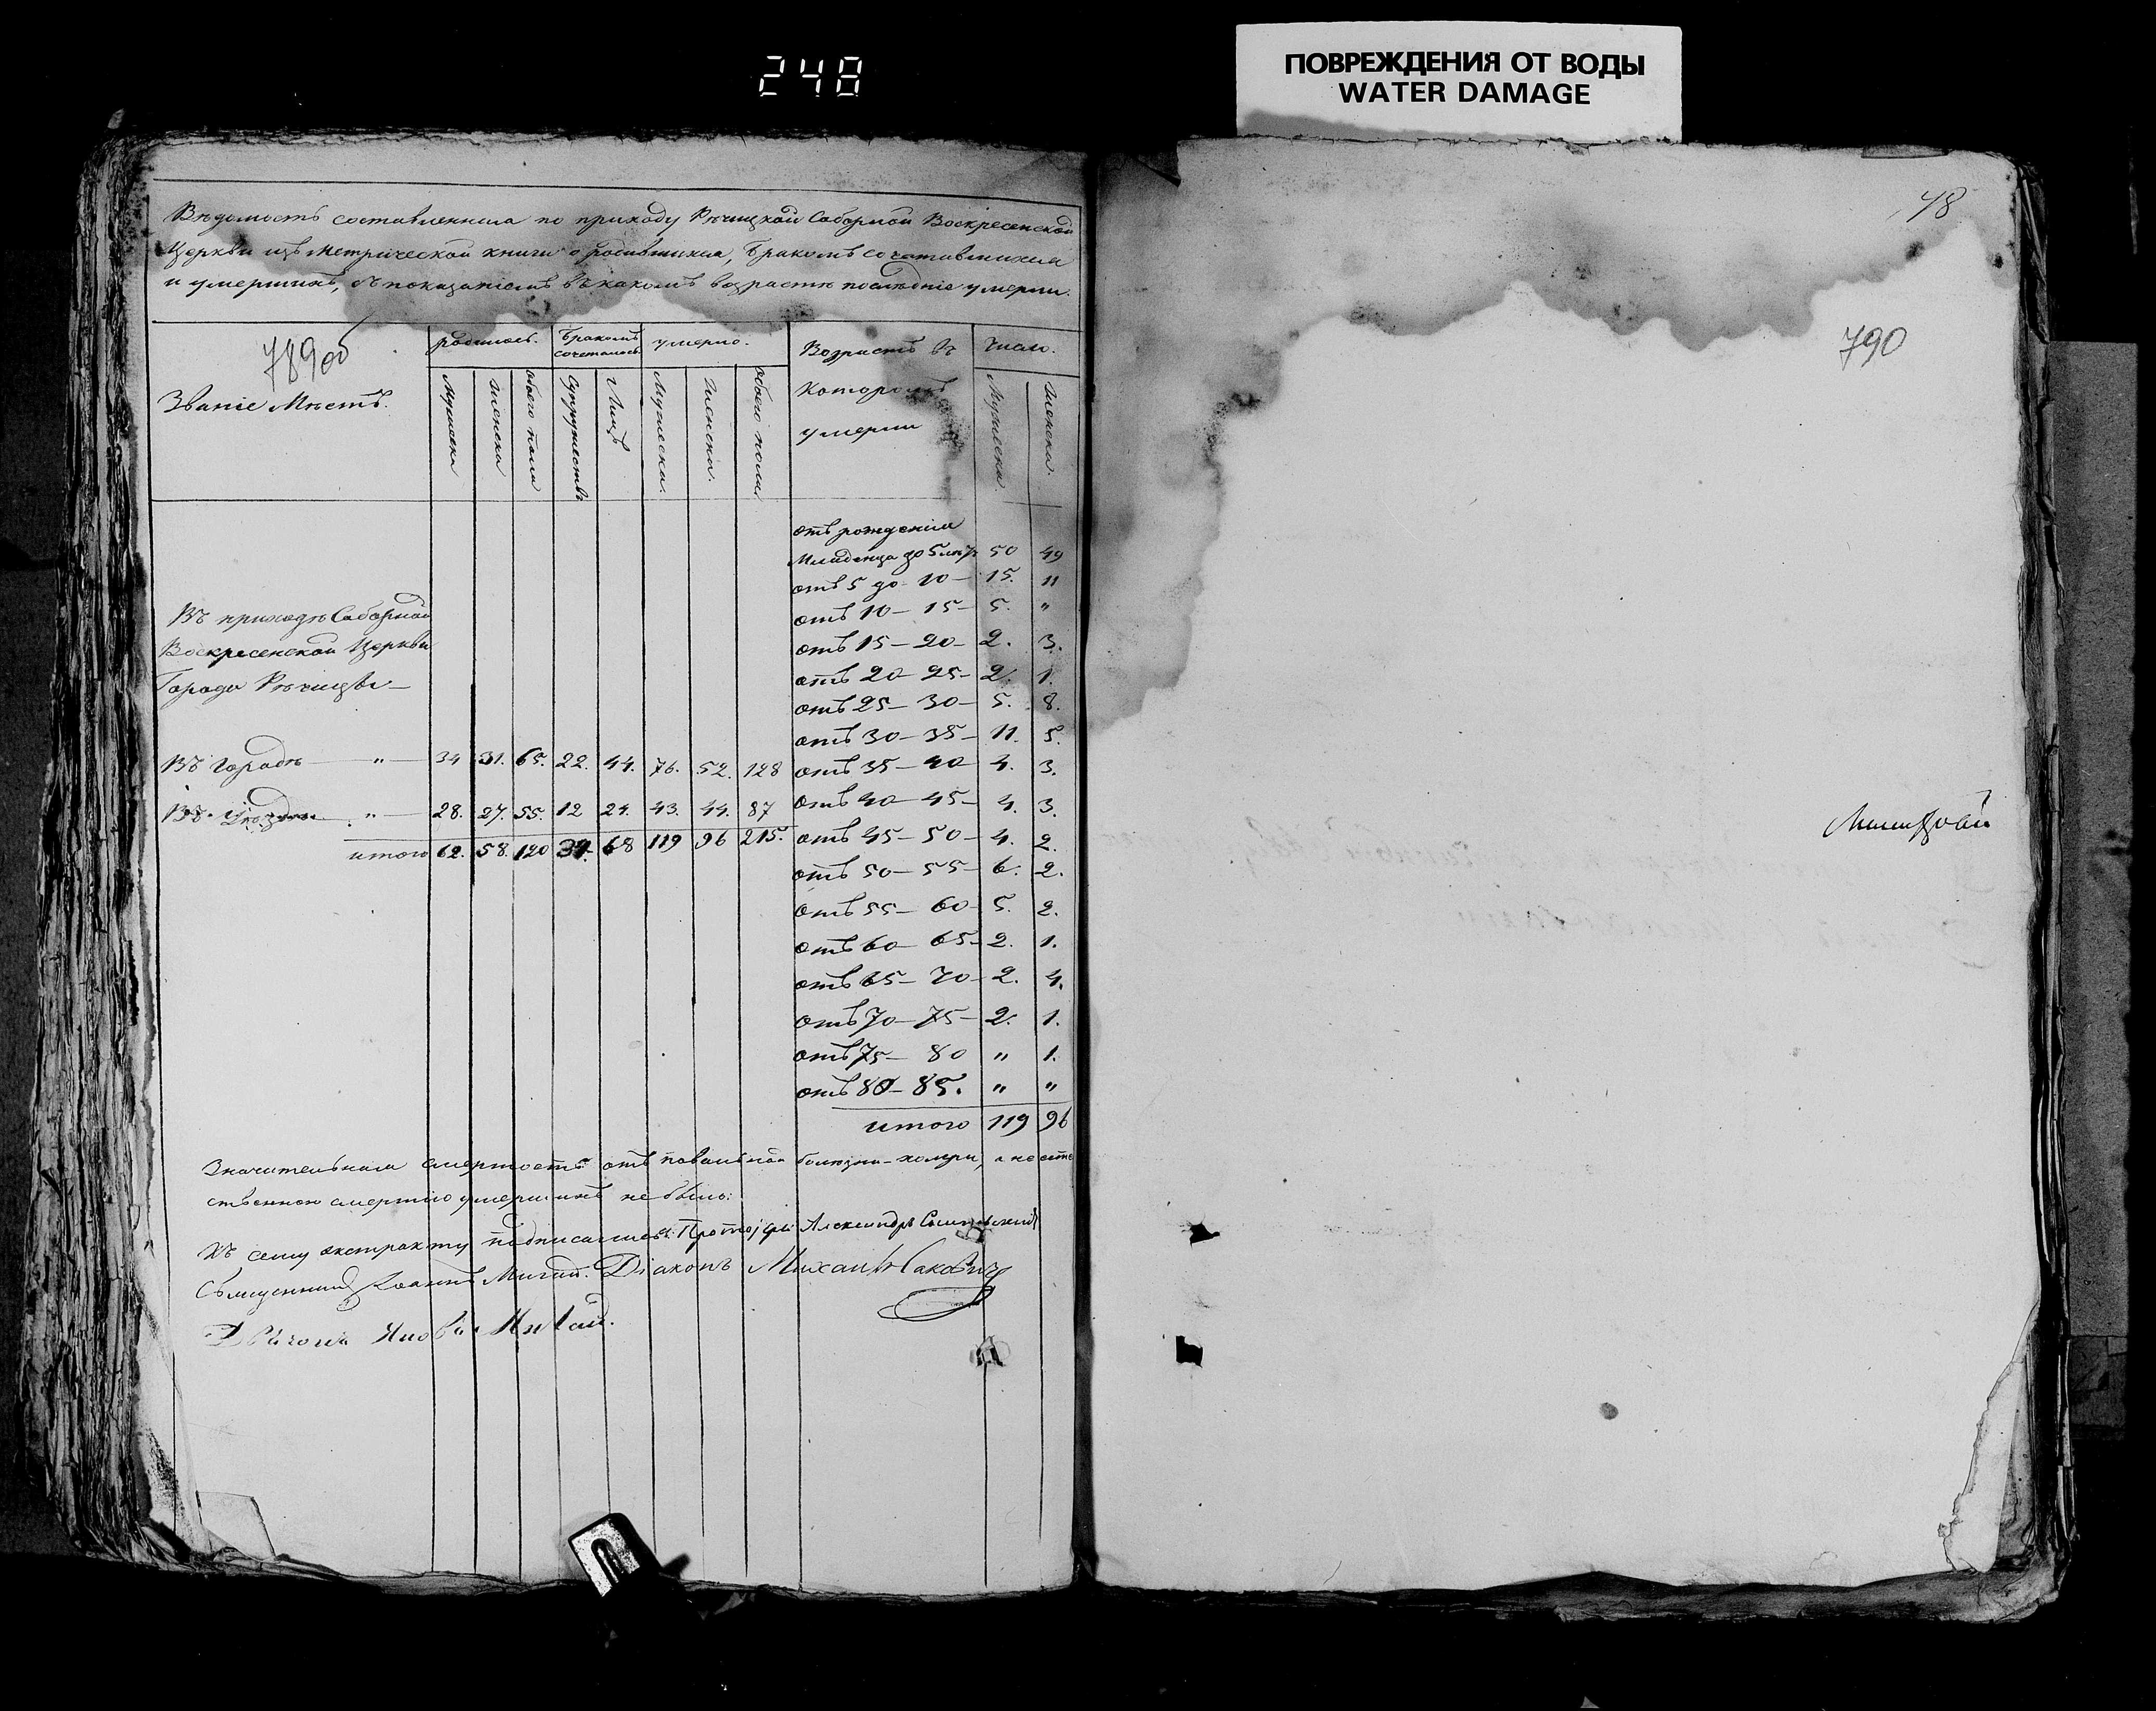 248
ПОВРЕЖДЕНИЯ ОТ ВОДЫ
WATER DAMAGE
Вѣдомость составленная по приходу Рѣчицкой Соборной Воскресенской
Церкви изъ Метрической книги о родившихся, бракомъ сочетавшихся
и умершихъ, съ показаніемъ въ какомъ возрастѣ послѣдніе умерли.
789об
Званіе Мѣстъ.
родилось. Бракомъ сочеталось умерло. Возрастъ въ которомъ умерли Число.
Мужеска Женска обоего пола Супружествъ Лицъ Мужеска. Женска. обоего пола Мужеска. Женска.
отъ рожденія
Младенца до 5 лѣтъ 50 49
отъ 5 до 10 — 15. 11
отъ 10 — 15 — 5. "
Въ приходѣ Соборной
отъ 15 — 20 — 2. 3.
Воскресенской Церкви
отъ 20 — 25 — 2. 1.
Города Рѣчицы —
отъ 25 — 30 — 5. 8.
отъ 30 — 35 — 11. 5.
Въ Городѣ — " — 34 31. 65. 22. 44. 76. 52. 128 отъ 35 — 40 4. 3.
Въ Уѣздѣ — " — 28. 27. 55. 12 24. 43. 44. 87 отъ 40 — 45 — 4. 3.
итого 62. 58. 120 34. 68 119 96 215. отъ 45 — 50 — 4. 2.
отъ 50 — 55 — 6. 2.
отъ 55 — 60 — 5. 2.
отъ 60 — 65 — 2. 1.
отъ 65 — 70 — 2. 4.
отъ 70 — 75 — 2. 1.
отъ 75 — 80 " 1.
отъ 80 — 85. " "
итого 119 96
Значительная смертность отъ повальной болѣзни холеры, а не есте
ственною смертію умершихъ не было:
Къ сему экстракту подписались: Протоіерей Александръ
Священникъ Іоаннъ Мигай. Діаконъ Михаилъ
Мигай.
48
790